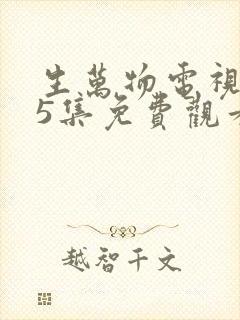 生萬物電視
5集免費觀
越智千文